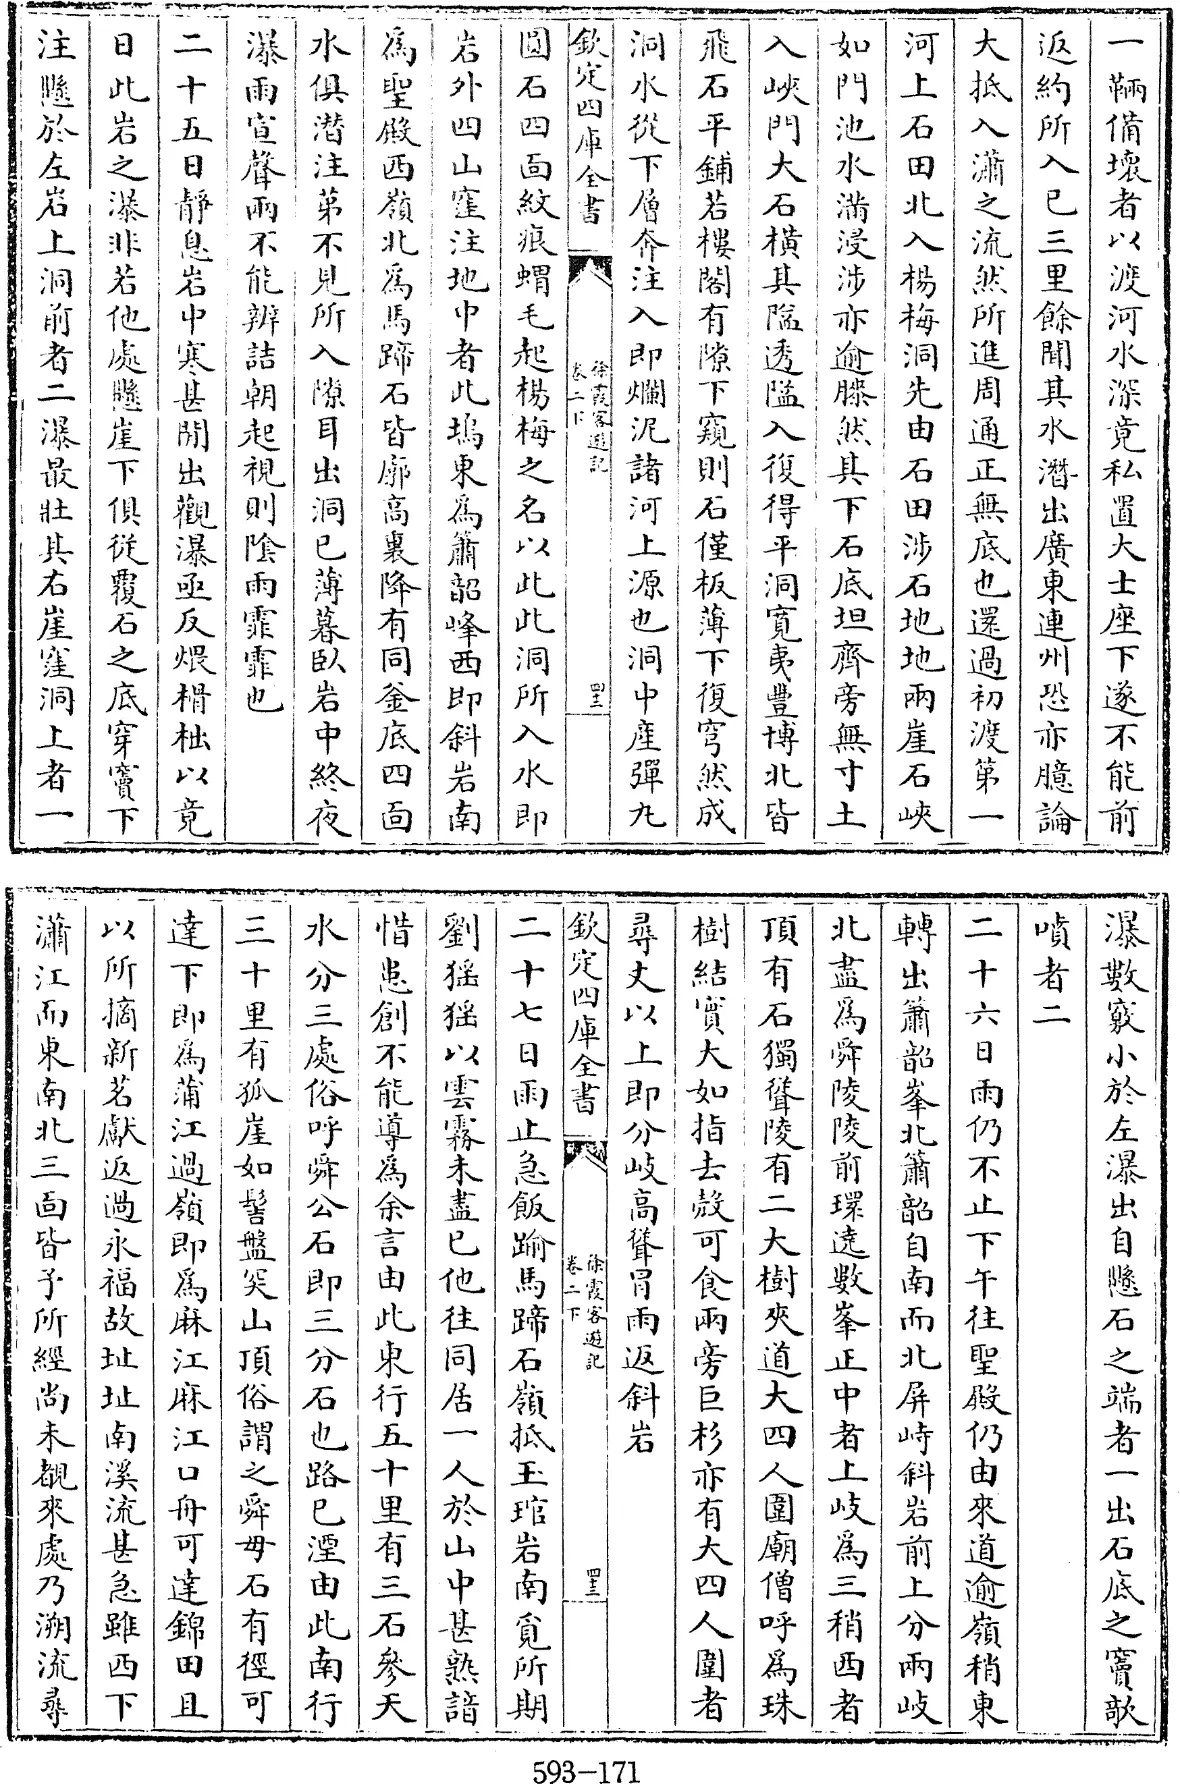 一輛備壞者以渡河水深竟私置大士座下遂不能前
返約所入已三里餘聞其水潛出廣東連州恐亦臆論
大抵入瀟之流然所進周通正無底也還過初渡第一
河上石田北入楊梅洞先由石田涉石地地兩崖石峽
如門池水滿浸涉亦逾膝然其下石底坦齊旁無寸土
入峽門大石橫其隘透隘入復得平洞寬夷豐博北皆
飛石平鋪若樓閣有隙下窺則石僅板薄下復穹然成
洞水從下層奔注入即爛泥諸河上源也洞中産彈丸
欽定四庫全書
徐霞客遊記
卷二下
四十三
圓石四面紋痕蝟毛起楊梅之名以此此洞所入水即
岩外四山窪注地中者此塢東為簫韶峰西即斜岩南
為聖殿西嶺北為馬蹄石皆廓高裏降有同釜底四面
水俱潛注第不見所入隙耳出洞已薄暮臥岩中終夜
瀑雨宣聲兩不能辨詰朝起視則陰雨霏霏也
二十五日靜息岩中寒甚閒出觀瀑亟反煨榾柮以竟
日此岩之瀑非若他處懸崖下俱從覆石之底穿竇下
注懸於左岩上洞前者二瀑最壯其右崖窪洞上者一
瀑數竅小於左瀑出自懸石之端者一出石底之竇歕
噴者二
二十六日雨仍不止下午往聖殿仍由來道逾嶺稍東
轉出簫韶峯北簫韶自南而北屏峙斜岩前上分兩岐
北盡為舜陵陵前環遶數峯正中者上岐為三稍西者
頂有石獨聳陵有二大樹夾道大四人圍廟僧呼為珠
樹結實大如指去殼可食兩旁巨杉亦有大四人圍者
尋丈以上即分岐高聳冒雨返斜岩
欽定四庫全書
徐霞客遊記
卷二下
四十三
二十七日雨止急飯踰馬蹄石嶺抵玉琯岩南覓所期
劉猺猺以雲霧未盡已他往同居一人於山中甚熟諳
惜患創不能導為余言由此東行五十里有三石參天
水分三處俗呼舜公石即三分石也路已湮由此南行
三十里有狐崖如髻盤突山頂俗謂之舜母石有徑可
達下即為蒲江過嶺即為麻江麻江口舟可達錦田且
以所摘新茗獻返過永福故址址南溪流甚急雖西下
瀟江而東南北三面皆予所經尚未覩來處乃溯流尋
593-171